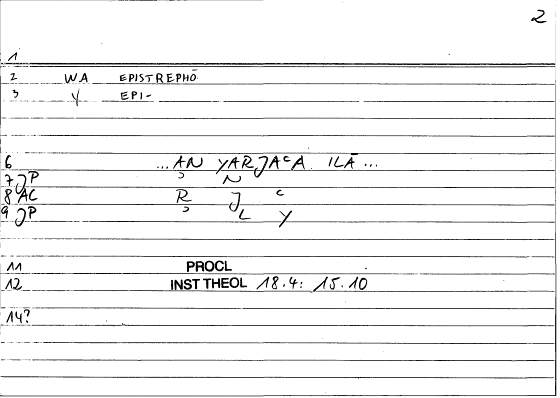 2
1
2 WA EPISTREPHŌ
3 Y EPI-
6 ...AN YARJAcA ILĀ...
7 JP
8 AC R J c
9 JP L Y
11 PROCL
12 INST THEOL 18.4: 15.10
14?